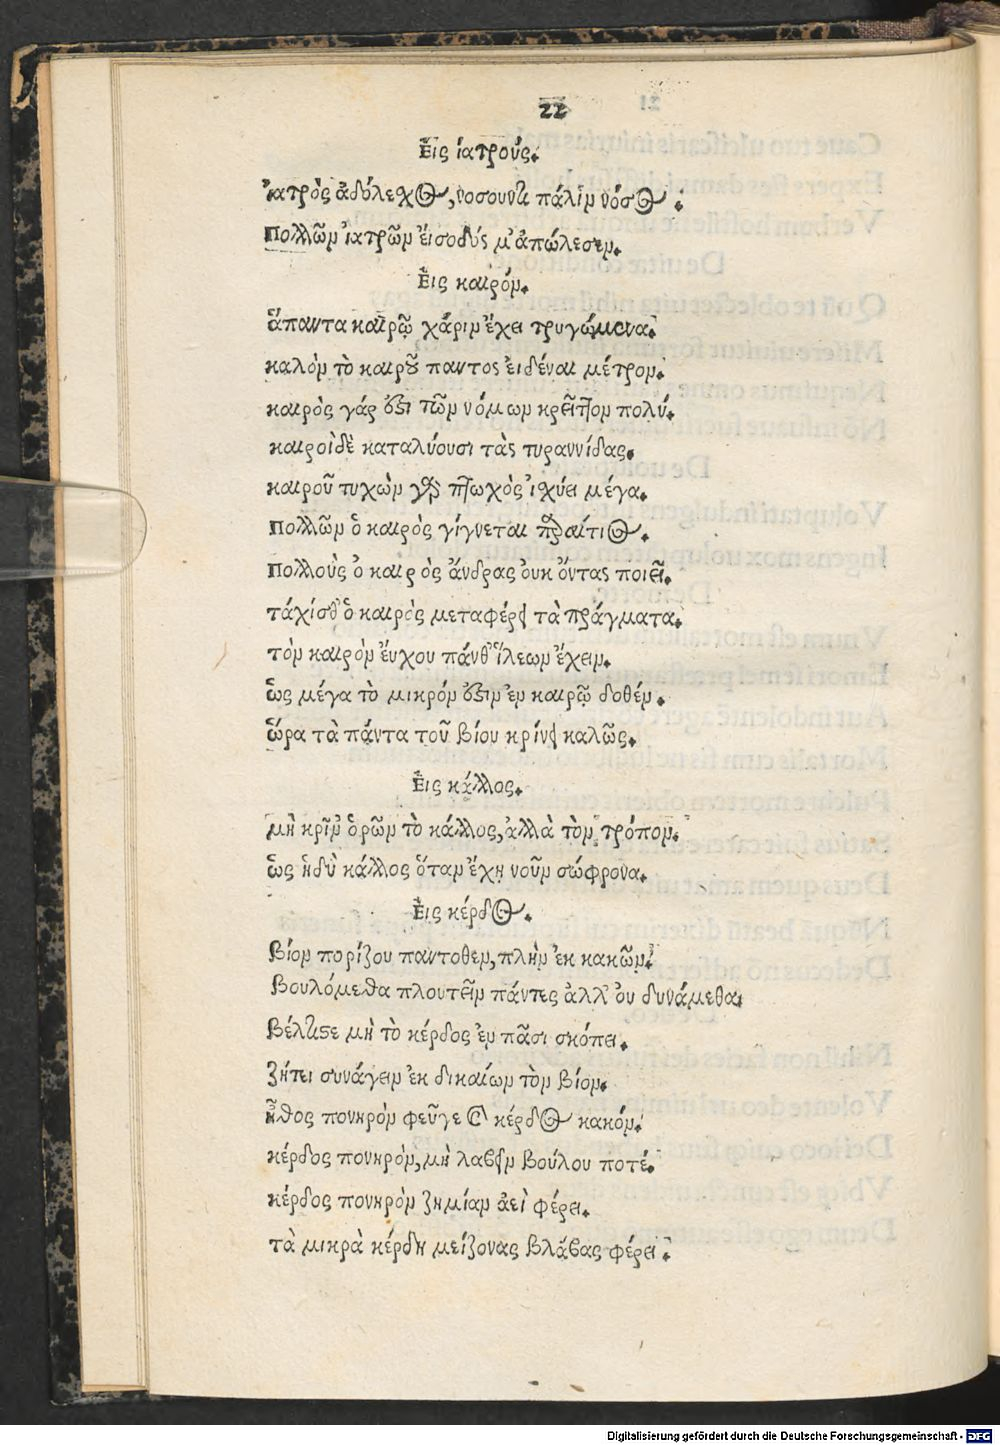 22
Εἰς ἰατρούς.
ἰατρὸς ἀδόλεχος, νοσοῦντι πάλιν νόσος.
πολλῶν ἰατρῶν εἴσοδός μ' ἀπώλεσεν.
Εἰς καιρόν.
ἅπαντα καιρῷ χάριν ἔχει τρυγώμενα.
καλὸν τὸ καιροῦ παντος εἰδέναι μέτρον.
καιρὸς γάρ ἐστι τῶν νόμων κρεῖττον πολύ.
καιροὶ δὲ καταλύουσι τὰς τυραννίδας.
καιροῦ τυχὼν γὰρ πτωχὸς ἰχύει μέγα.
πολλῶν ὁ καιρὸς γίγνεται παραίτιος.
πολλοὺς ὁ καιρὸς ἄνδρας οὐκ ὄντας ποιεῖ.
τάχισθ' ὁ καιρὸς μεταφέρει τὰ πράγματα.
τὸν καιρὸν εὔχου πάνθ' ἵλεων ἔχειν.
ὡς μέγα τὸ μικρόν ἐστιν ἐν καιρῷ δοθέν.
ὥρα τὰ πάντα τοῦ βίου κρίνει καλῶς.
Εἰς κάλλος.
μὴ κρῖν' ὁρῶν τὸ κάλλος, ἀλλὰ τὸν τρόπον.
ὡς ἡδὺ κάλλος ὅταν ἔχῃ νοῦν σώφρονα.
Εἰς κέρδος.
βίον πορίζου παντοθεν, πλὴν ἐκ κακῶν.
βουλόμεθα πλουτεῖν πάντες ἀλλ' οὐ δυνάμεθα.
βέλτιστε μὴ τὸ κέρδος ἐν πᾶσι σκόπει.
ζήτει συνάγειν ἐκ δικαίων τὸν βίον.
ἦθος πονηρὸν φεῦγε καὶ κέρδος κακόν.
κέρδος πονηρὸν, μὴ λαβεῖν βούλου ποτέ.
κέρδος πονηρὸν ζημίαν ἀεὶ φέρει.
τὰ μικρὰ κέρδη μείζονας βλάβας φέρει.
Digitalisierung gefördert durch die Deutsche Forschungsgemeinschaft - DFG